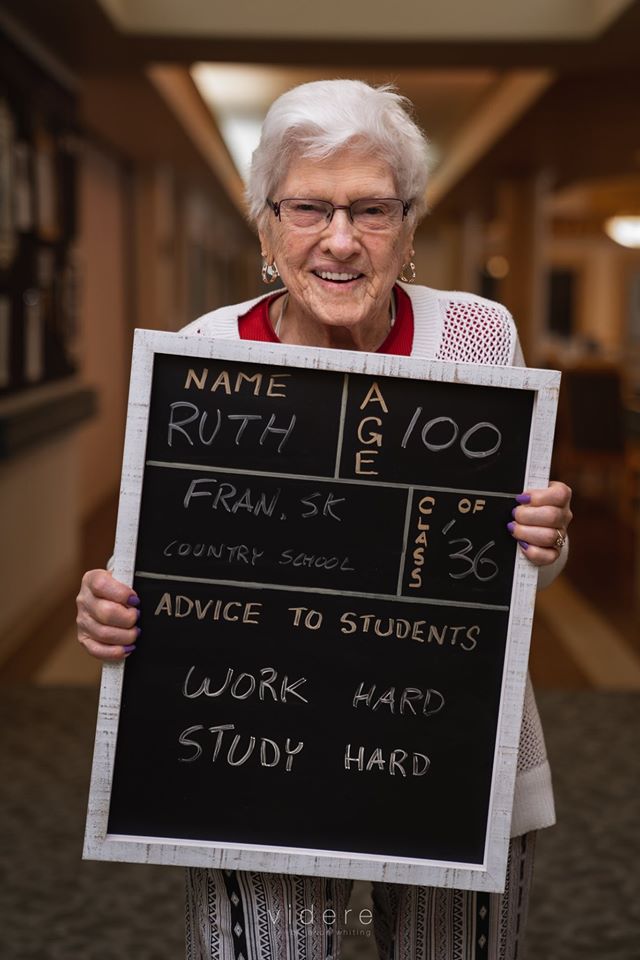 NAME
RUTH
AGE
100
FRAN, SK
COUNTRY SCHOOL
CLASS OF
'36
ADVICE TO STUDENTS
WORK HARD
STUDY HARD
videre
whiting